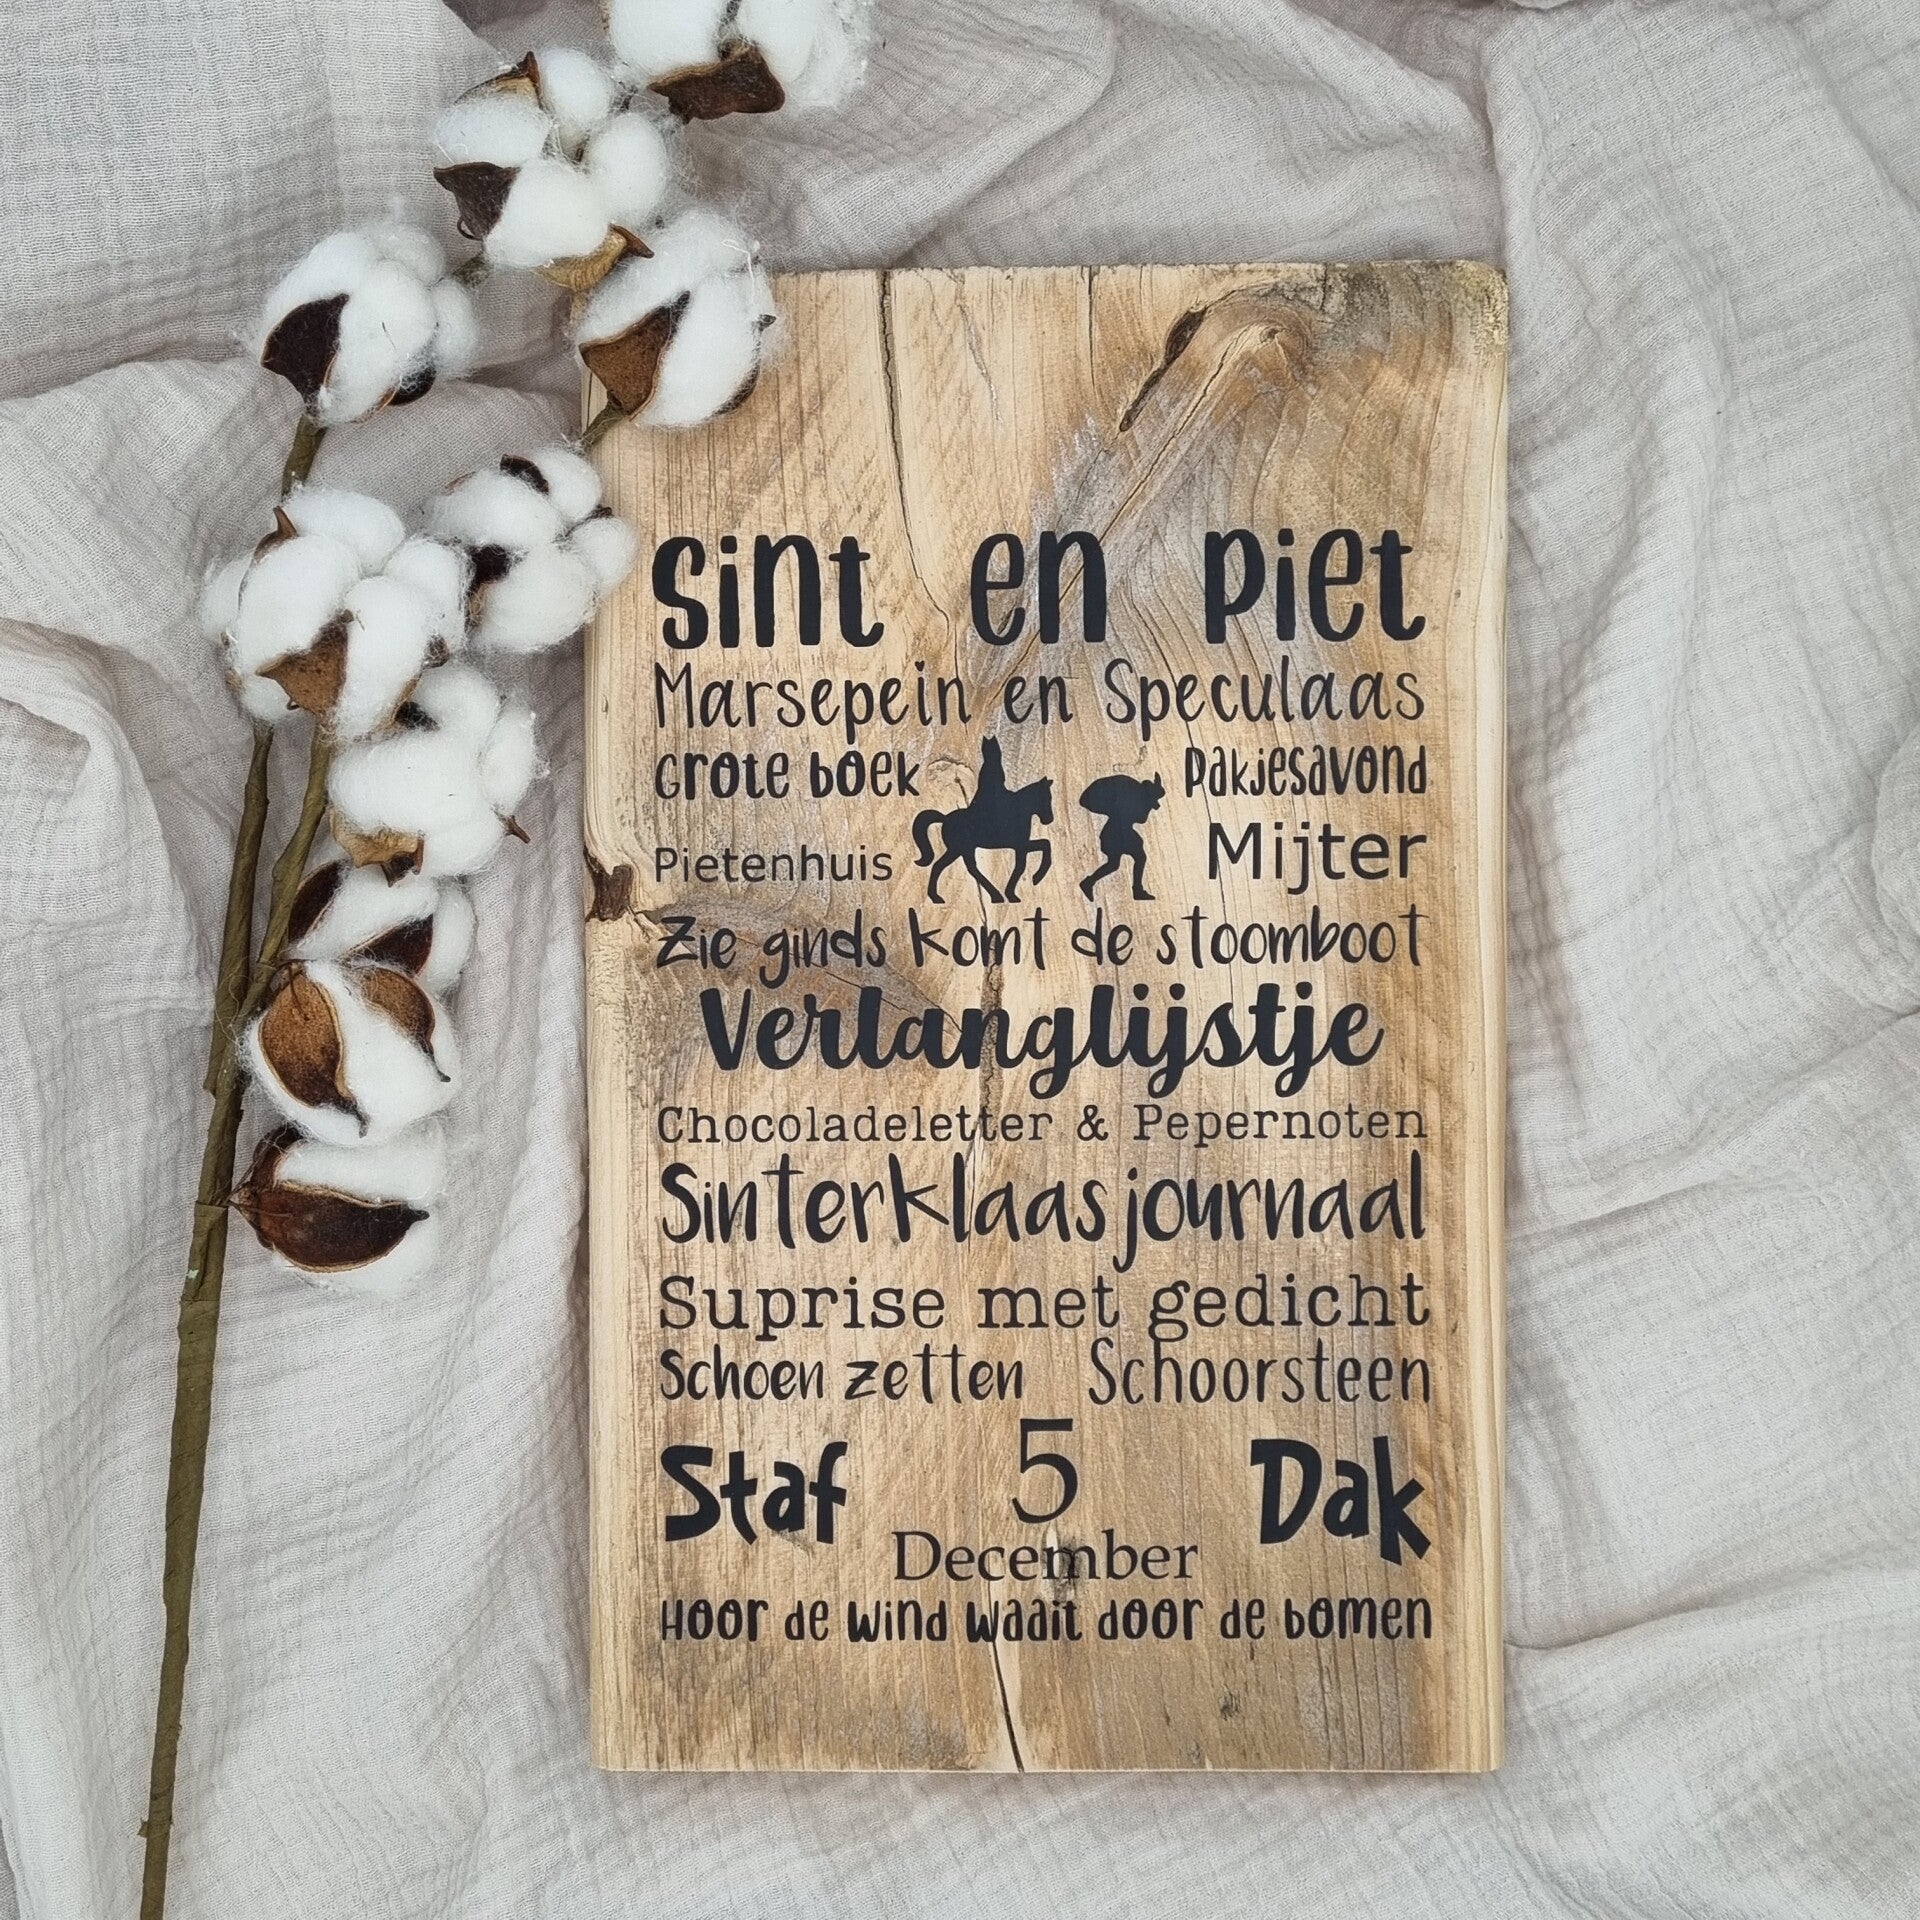 Sint en Piet
Marsepein en Speculaas
Grote boek Pakjesavond
Pietenhuis Mijter
Zie ginds komt de stoomboot
Verlanglijstje
Chocoladeletter & Pepernoten
Sinterklaasjournaal
Suprise met gedicht
Schoen zetten Schoorsteen
Staf 5 Dak
December
Hoor de wind waait door de bomen